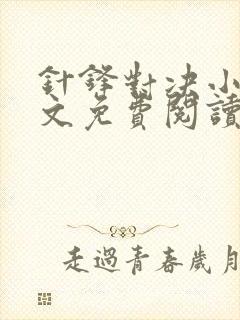 針鋒對决小
文免費閱讀
走過青春歲月